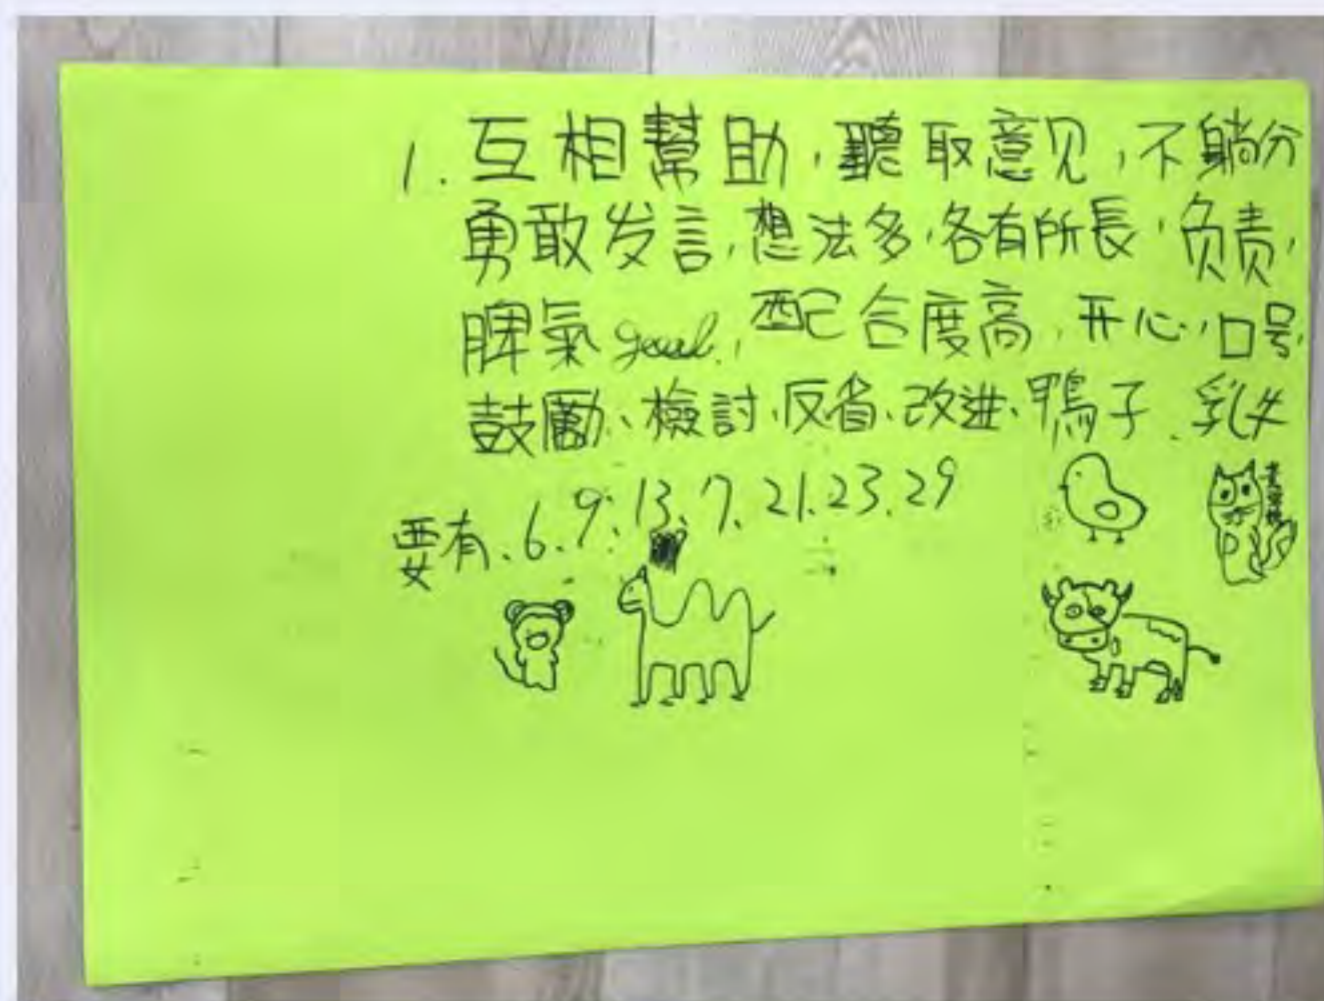 1. 互相幫助，聽取意见，不躺分
勇敢发言，想法多，各有所長，负责，
脾氣 good，配合度高，开心，口号，
鼓勵、檢討、反省、改进、鴨子、乳牛
要有、6、9、13、7、21、23、29